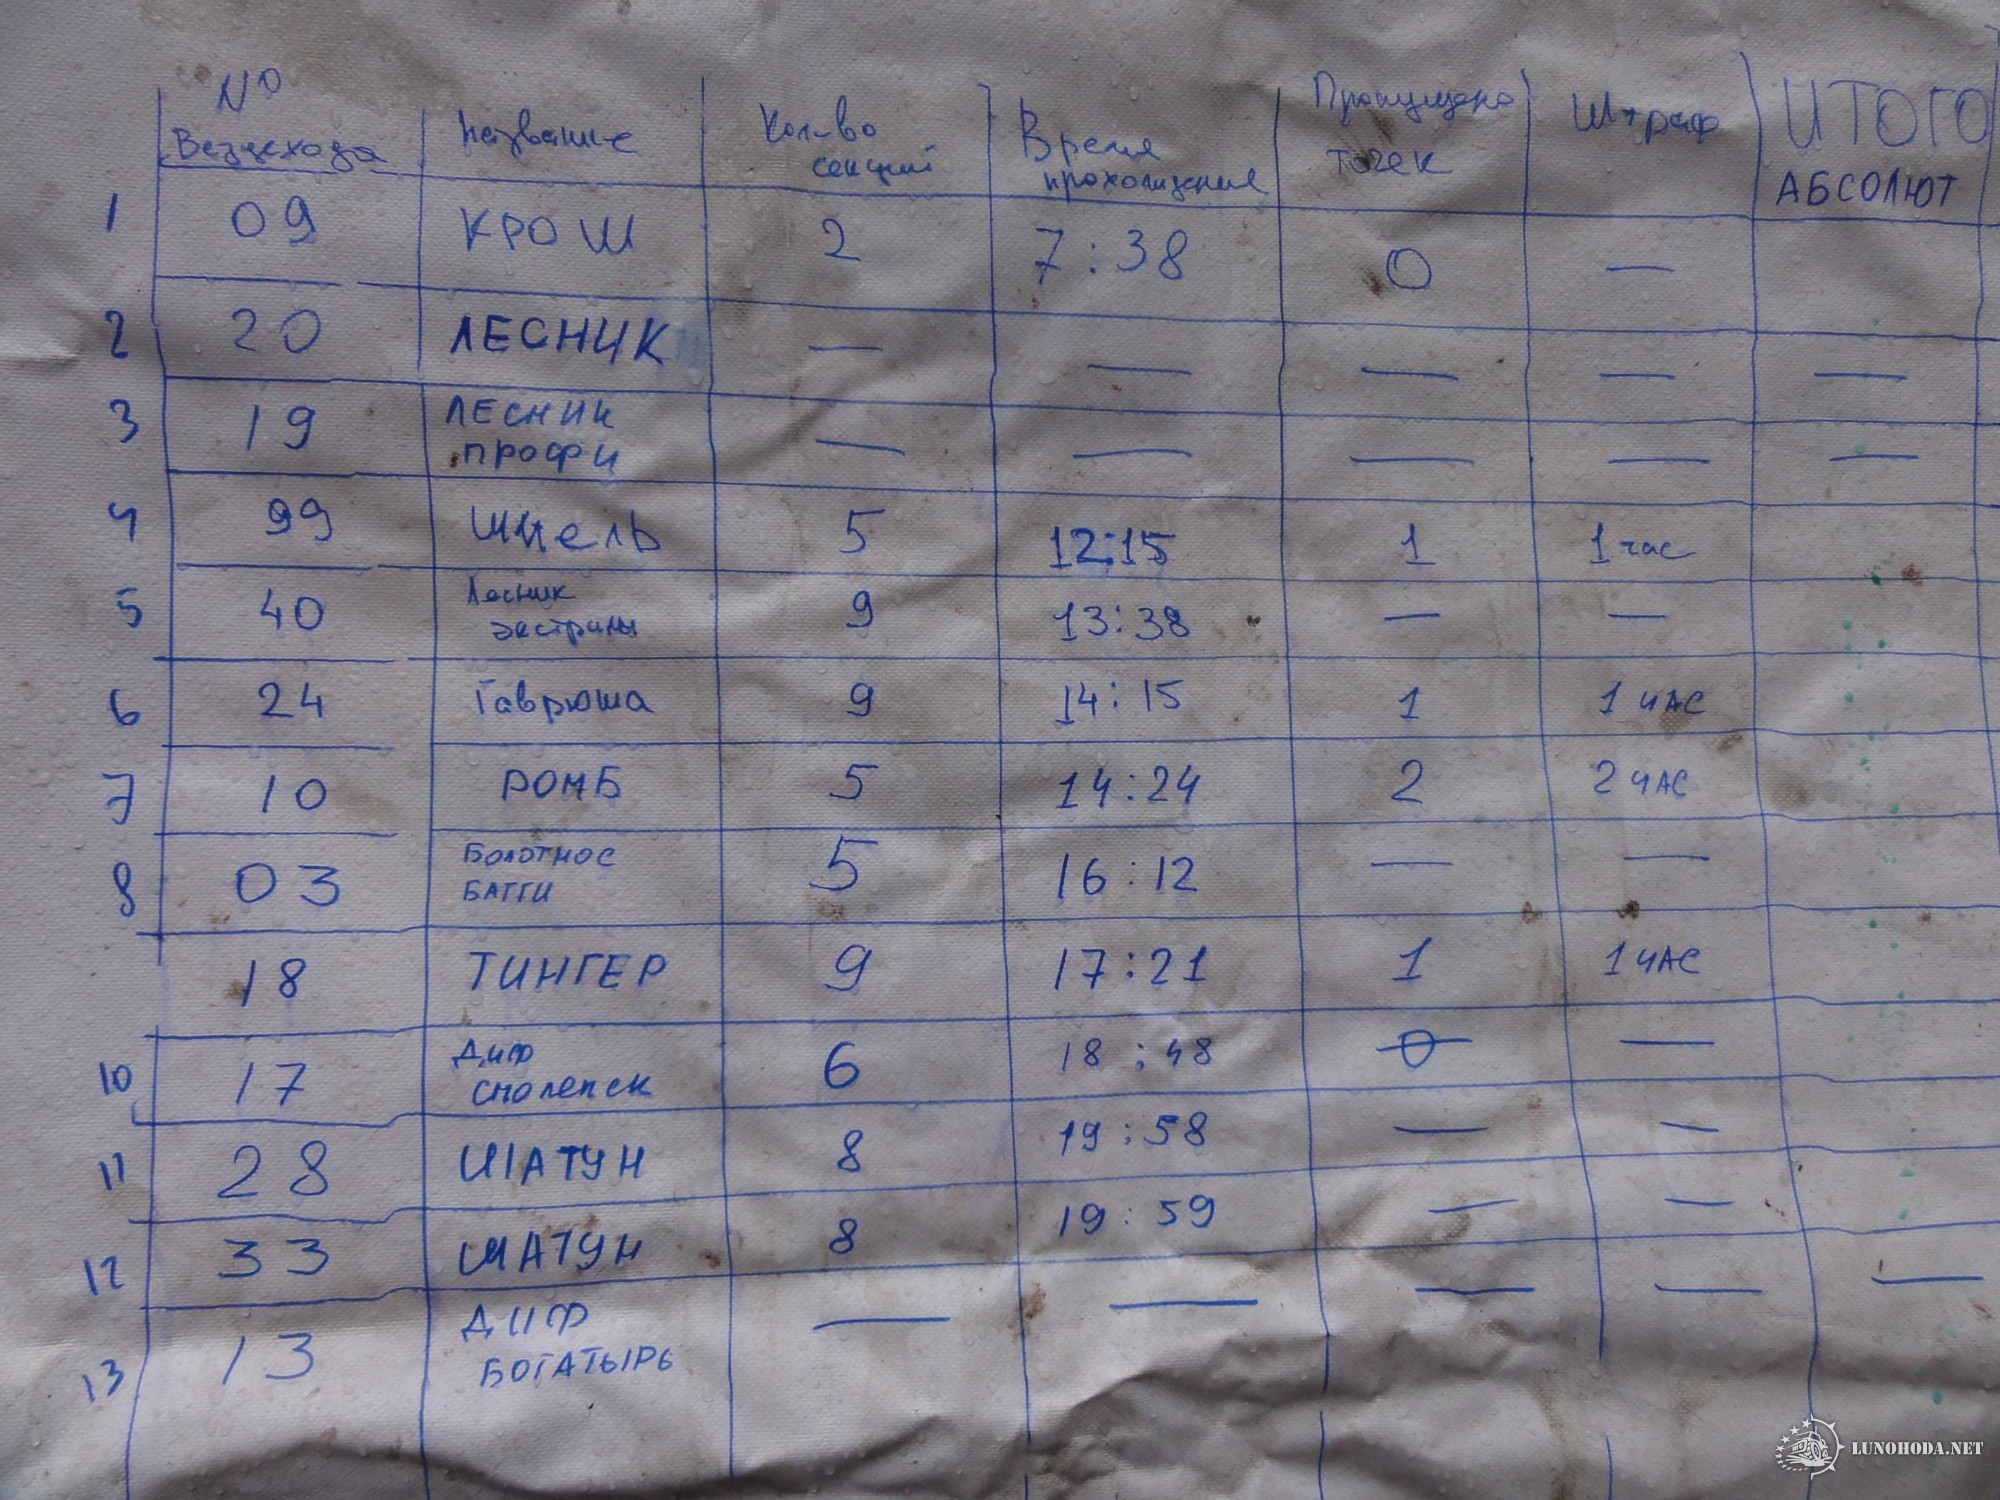 № Вездехода Название Кол-во секций Время прохождения Пропущено точек Штраф ИТОГО АБСОЛЮТ
1 09 КРОШ 2 7:38 0 —
2 20 ЛЕСНИК — — — — —
3 19 ЛЕСНИК ПРОФИ — — — — —
4 99 ШМЕЛЬ 5 12:15 1 1 час
5 40 Лесник экстрим 9 13:38 — —
6 24 Гаврюша 9 14:15 1 1 ЧАС
7 10 РОМБ 5 14:24 2 2 ЧАС
8 03 БОЛОТНОЕ БАГГИ 5 16:12 — —
18 ТИНГЕР 9 17:21 1 1 ЧАС
10 17 ДИФ СМОЛЕНСК 6 18:48 0 —
11 28 ШАТУН 8 19:58 — —
12 33 ШАТУН 8 19:59 — —
13 13 ДИФ БОГАТЫРЬ — — — — —
LUNOHODA.NET